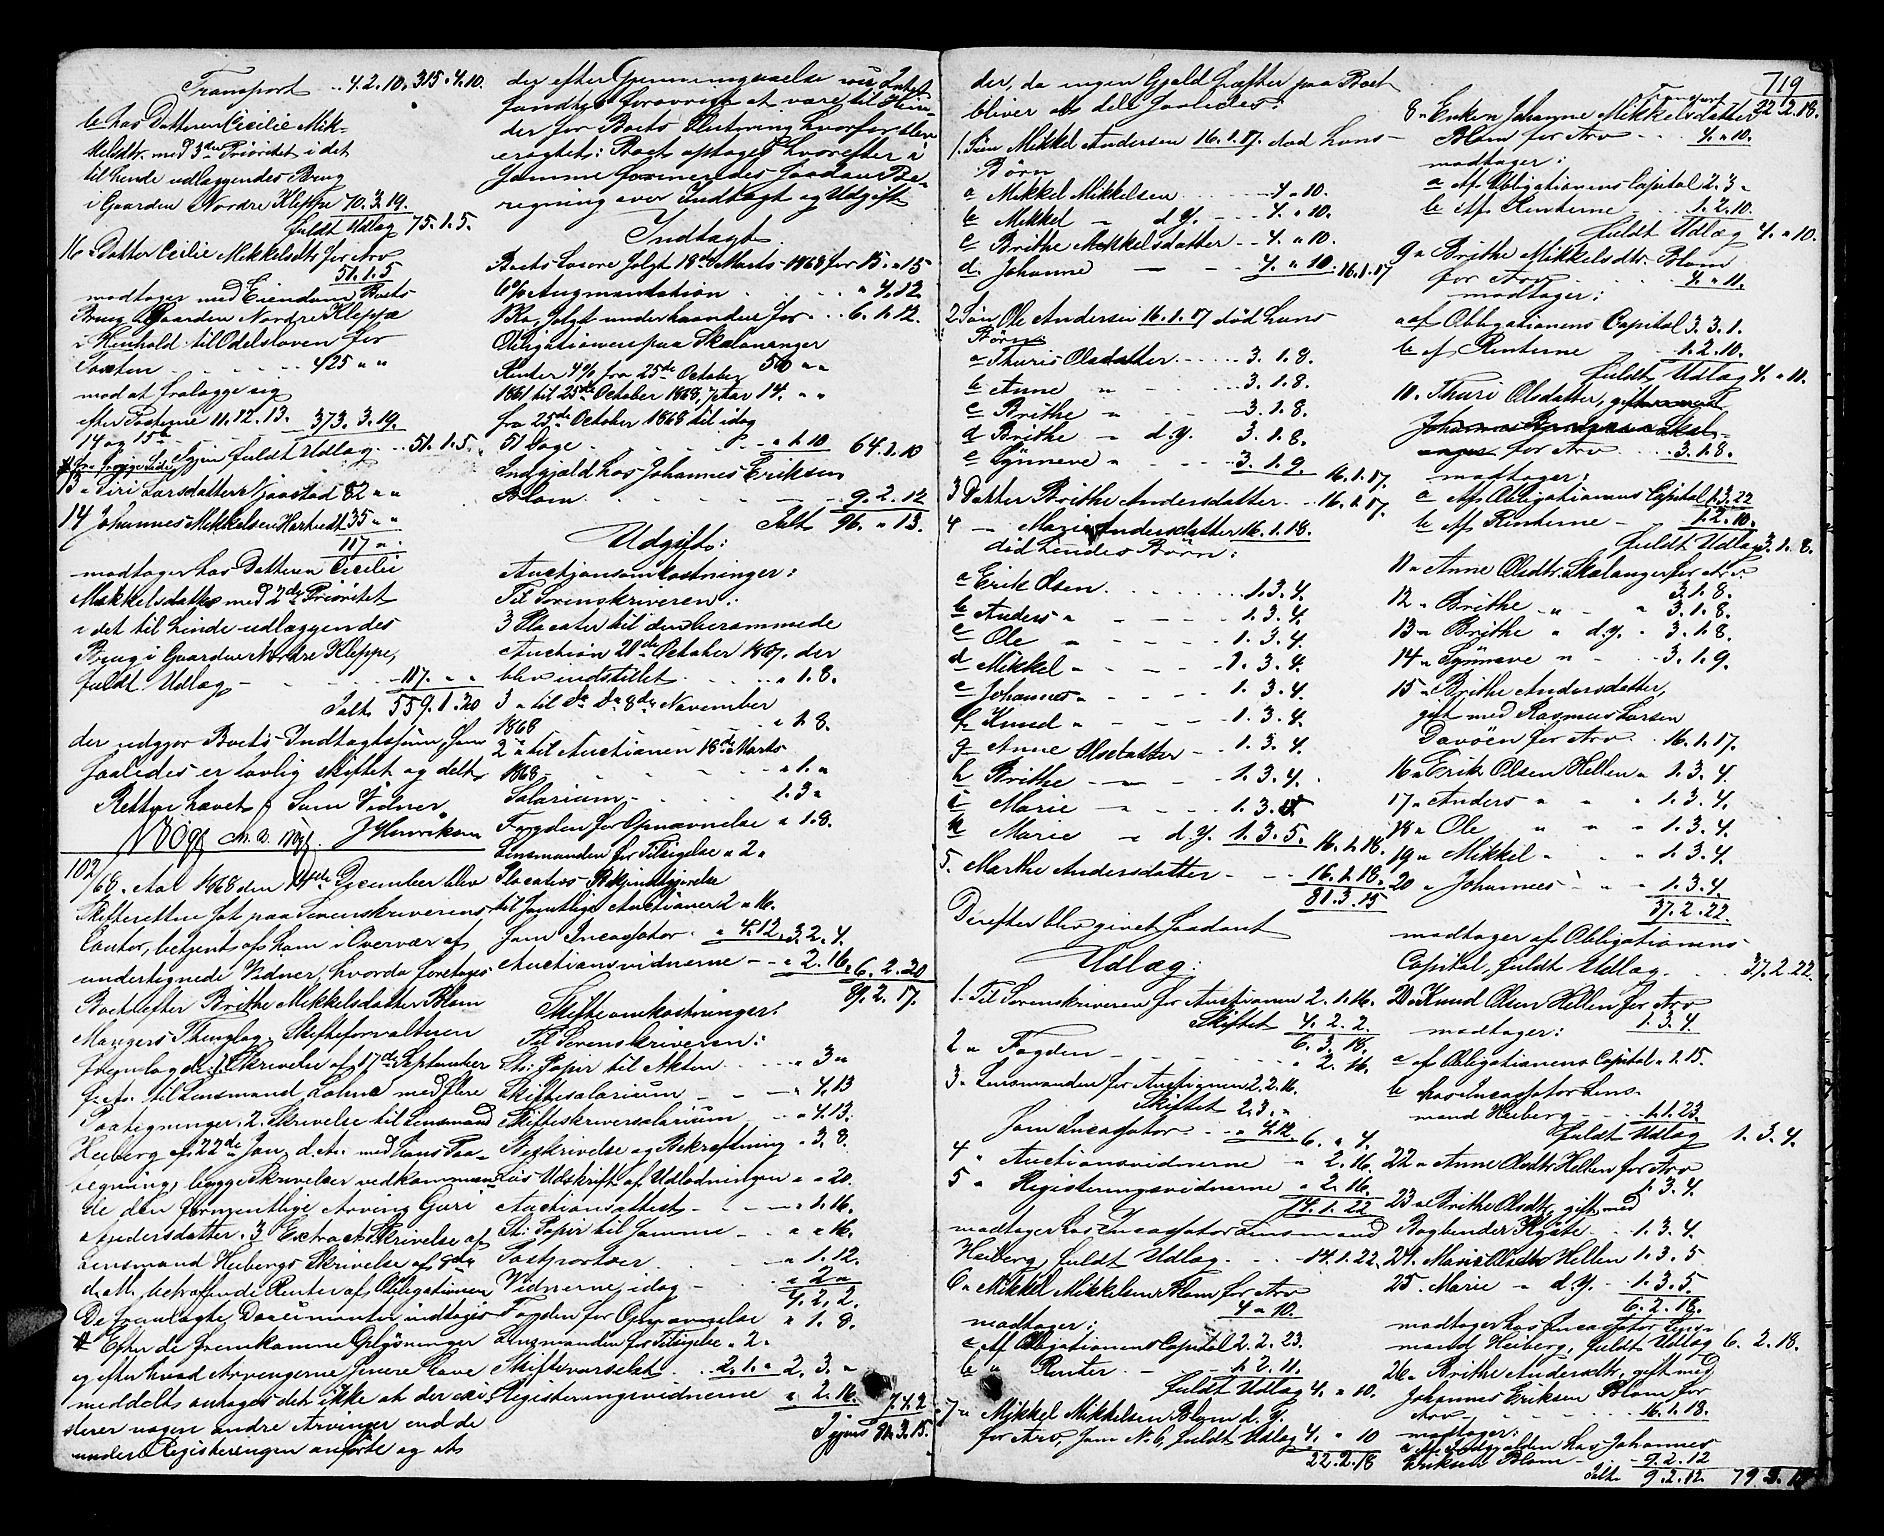 Transport .. 4.2.10. 315.4.10.
b hos Datteren Cicilie Mik-
kelsdtr. med 3die Prioritet i det
til hende udlæggendes Brug
i Gaarden Nordre Kleppe 70.3.19.
fuldt Udlæg 75.1.5.
16 Datter Cicilie Mikkelsdtr for Arv
51.1.5
modtager med Eiendom Boets
Brug i Gaarden Nordre Kleppe
i Henhold til Odelsloven for
Taxten 425 " "
mod at fralægge sig
efter Posterne 11.12.13. 373.3.19.
14 og 15
Igjen fuldt Udlæg .. 51.1.5.
13 " Siri Larsdatter Njaastad 82 " "
14 Johannes Mikkelsen Hartvedt 35 " "
117 " "
modtager hos Datteren Cicilie
Mikkelsdatter med 2den Prioritet
i det til hende udlæggendes
Brug i Gaarden Nordre Kleppe,
fuldt Udlæg 117. " "
Ialt 559.1.20
der udgjør Boets Indtægtssum, som
saaledes er lovlig skiftet og delt
Retten hævet Som Vidner
J Henriksen
102/68. Aar 1868 den December blev
Skifteretten sat paa Sorenskriverens
Contor, betjent af ham i Overvær af
undertegnede Vidner, hvorda foretoges
Boet efter Brithe Mikkelsdatter Blom
Mangers Thinglag. Skifteforvalteren
fremlagde: 1. Skrivelse af 17de September
f. A. til Lensmand med flere
Paategninger, 2. Skrivelse til Lensmand
Heiberg af 22de Jan. d. A. med hans Paa-
tegning, begge Skrivelser vedkommen-
de den formentlige Arving Guri
Andersdatter. 3 Extract Skrivelse af
Lensmand Heibergs Skrivelse af
d. M. betræffende Renter af Obligationen
De fremlagte Documenter indtages
# Efter de fremkomne Oplysninger
og efter hvad Arvingerne senere have
meddelt antages det ikke at der exi-
sterer nogen andre Arvinger end de
under Registreringen anførte og at
der efter Gjenningivelse
fandtes forøvrigt at være til Hin-
der for Boets Slutning hvorfor blev
eragtet: Boet optages hvorefter i
Samme formeredes saadan Be-
regning over Indtægt og Udgift
Indtægt.
Boets Løsøre solgt 18de Marts 1868 for 15. " 15
6% Augmentation " 4.12
1 Ko, solgt underhaanden for 6.1.12.
Obligationen paa Skalanger
50 " "
Renter 4% fra 25de October
1861 til 25de October 1868, 7 Aar 14. " "
fra 25de October 1868 til idag
51 Dage " 1.10 64.1.10
Indgjæld hos Johannes Eriksen
Blom 9.2.12
Ialt 96. " 13.
Udgift:
Auctionsomkostninger:
Til Sorenskriveren:
3 Placater til den berammede
Auction 21de October 1867, der
blev indstillet " 1.8.
3 " til Do Do 8de November
1868 " 1.8.
2 " til Auctionen 18de Marts
1868 " 1. "
Salarium 1.3 "
Fogden for Opnævnelse " 1.8.
Lensmanden for Tilsigelse " 2 "
Placaters Bekjendtgjørelse
til samtlige Auctioner 2 " 16.
som Incassator " 4.12. 3.2.4.
Auctionsvidnerne " 2.16. 6.2.20
89.2.17.
Skifteomkostninger:
Til Sorenskriveren:
St: Papir til Akten " 3 "
Skiftesalarium " 4.13
Skifteskriversalarium " 4.13.
Beskrivelse og Bekræftning " 3.8.
Lös Udskrift af Udlodningen " " 20.
Auctionsattest " 1.16.
St: Papir til samme " " 16.
Postportoer " 1.12.
Vidnerne idag " 2 "
4.2.2.
Fogden for Opnævnelse " 1.8.
Lensmanden for Tilsigelse " 2 "
Skiftevarselet 2.1. " 2.3. "
Registreringsvidnerne " 2.16.
Igjen 81.3.15.
719
der, da ingen Gjeld hæfter paa Boet
bliver at dele saaledes:
1. Søn Mikkel Andersen 16.1.17. død hans
Børn
a Mikkel Mikkelsen 4 " 10.
b Mikkel " d.Y. 4 " 10.
c Brithe Mikkelsdatter 4. " 10.
d. Johanne 4. " 10. 16.1.17
2 Søn Ole Andersen 16.1.17 død hans
Børn
a Thuris Olsdatter 3.1.8.
b Anne " 3.1.8.
c Brithe " 3.1.8.
d Brithe " d.y. 3.1.8.
e Synneve " 3.1.9. 16.1.17.
3 Datter Brithe Andersdatter 16.1.17.
4 " Marie Andersdatter 16.1.18.
død hendes Børn:
a Erik Olsen 1.3.4.
b Anders " 1.3.4.
c Ole " 1.3.4.
d Mikkel " 1.3.4.
e Johannes " 1.3.4.
f Knud " 1.3.4.
g Anne Olsdatter 1.3.4.
h Brithe 1.3.4.
i Marie " 1.3.5.
k Marie " d.Y. 1.3.5. 16.1.18.
5. Marthe Andersdatter 16.1.18.
81.3.15
Derefter blev givet saadant
Udlæg:
1. Til Sorenskriveren for Auctionen 2.1.16.
Skiftet 4.2.2.
6.3.18.
2 " Fogden " 2.16.
3 " Lensmanden for Auctionen 2.2.16.
Skiftet 2.3. "
som Incassator " 4.12. 6. " 4.
4 " Auctionsvidnerne " 2.16.
5 " Registreringsvidnerne " 2.16.
14.1.22
modtager hos Incassator Lensmand
Heiberg, fuldt Udlæg 14.1.22.
6 " Mikkel Mikkelsen Blom for Arv
4 " 10.
modtager:
a af Obligationens Capital 2.2.23.
b " Renter 1.2.11.
fuldt Udlæg 4. " 10.
7 " Mikkel Mikkelsen Blom d. Y.
for Arv, som No 6, fuldt Udlæg 4. " 10
22.2.18
Transport 22.2.18.
8 " Enken Johanne Mikkelsdatter
Blom for Arv 4. " 10.
modtager:
a af Obligationens Capital 2.3 "
b af Renterne 1.2.10.
fuldt Udlæg 4. " 10.
9 " Brithe Mikkelsdtr. Blom
for Arv 4. " 11.
modtager:
a af Obligationens Capital 3.3.1.
b af Renterne 1.2.10.
fuldt Udlæg 4. " 11.
10. Thuri Olsdatter,
for Arv 3.1.8.
modtager:
a af Obligationens Capital 1.3.22
b af Renterne 1.2.10.
fuldt Udlæg 3.1.8.
11 " Anne Olsdtr. Skalanger for Arv
3.1.8.
12 " Brithe " " 3.1.8.
13 " Brithe " d.y. " 3.1.8.
14 " Synneve " 3.1.9.
15 " Brithe Andersdatter,
gift med Rasmus Larsen
Davøen for Arv 16.1.17.
16 " Erik Olsen Hellen " 1.3.4.
17 " Anders " " " 1.3.4.
18 " Ole " " " 1.3.4.
19 " Mikkel " " " 1.3.4.
20 " Johannes " " 1.3.4.
37.2.22.
modtager af Obligationens
Capital, fuldt Udlæg 37.2.22.
21 " Knud Olsen Hellen for Arv
modtager: 1.3.4.
a af Obligationens Capital " 1.15.
b hos Incassator Lens-
mand Heiberg 1.1.23.
fuldt Udlæg 1.3.4.
22 " Anne Olsdtr Hellen for Arv
1.3.4.
23 " Brithe Olsdtr, gift med
Bogbinder 1.3.4.
24. Marie Olsdtr Hellen 1.3.5
25. Marie " d.Y. 1.3.5.
6.2.18.
modtager hos Incassator Lens-
mand Heiberg, fuldt Udlæg 6.2.18.
26 " Brithe Andersdtr, gift med
Johannes Eriksen Blom for
Arv 16.1.18.
modtager:
a Indgjælden hos Johannes
Eriksen Blom 9.2.12
Ialt 9.2.12.